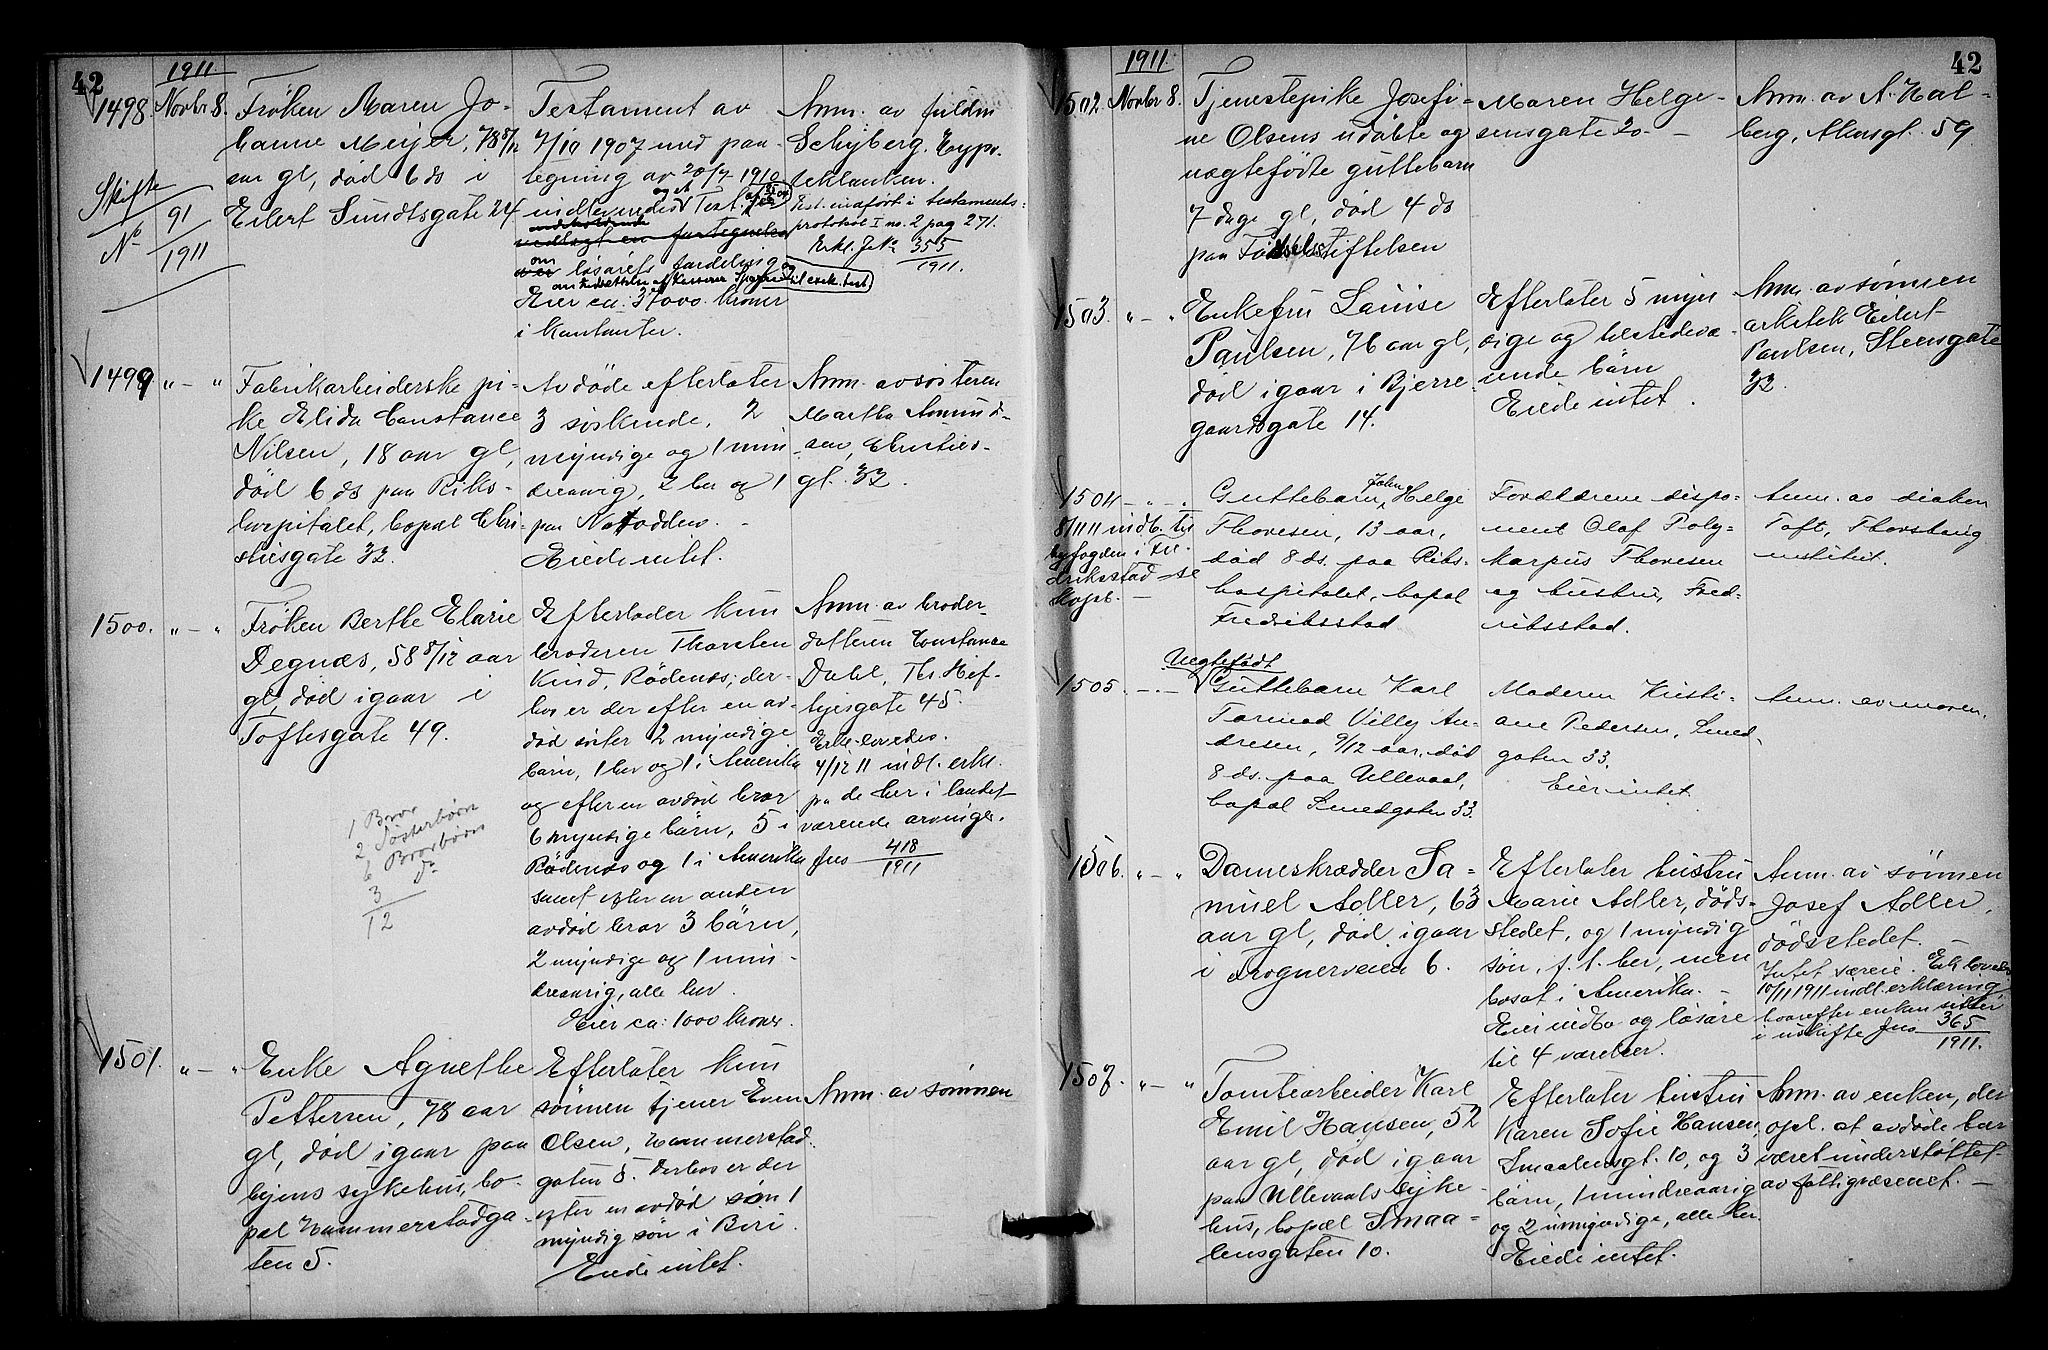 42
1911.
1498. Novbr 8.
Frøken Maren Jo-
hanne Meijer, 78 8/12
aar gl, død 6 ds i
Eilert Sundtsgate 24.
Skifte
No 91/1911
Testament av
7/10 1907 med paa-
tegning av 20/7 1910
indleveredes og et Test.
om løsørets fordeling og
Eier ca. 37000 kroner
i kontanter.
Anm. av fuldm
Schyberg. Hypo-
tekbanken.
Test. indført i testaments-
protokol I no. 2 pag 271.
Erkl. J.No 355/1911.
1499 " — "
Fabrikarbeiderske pi-
ke Elida Constance
Nilsen, 18 aar gl,
død 6 ds paa Riks-
hospitalet, bopæl Chri-
stiesgate 32.
Avdøde efterlater
3 søskende, 2
myndige og 1 min
dreaarig, 2 her og 1
paa Notodden. -
Eiede intet.
Anm. av søsteren
Martha Amund-
sen, Christies-
gt. 32.
1500. " — "
Frøken Berthe Elarie
Degnæs, 58 8/12 aar
gl, død igaar i
Toftesgate 49.
1 Bror
2 Søsterbørn
6 Brorbørn
3 do
12
Efterlader kun
broderen Thorsten
Kind, Rødenes; der-
hos er der efter en av-
død søster 2 myndige
børn, 1 her og 1 i Amerika
og efter en avdød bror
6 myndige børn, 5 i
Rødenes og 1 i Amerika
samt efter en anden
avdød bror 3 børn,
2 myndige og 1 min-
dreaarig, alle her.
Eier ca: 1000 kroner.
Anm. av broder-
datteren Constance
Dahl, Th. Hef-
tyesgate 45.
Erkl. lovedes.
4/12 11 indl. erkl.
fra de her i landet
værende arvinger.
Jno 418/1911
1501. " — "
Enke Agnethe
Pettersen, 78 aar
gl, død igaar paa
byens sykehus, bo-
pæl Hammerstadga-
ten 5.
Efterlater kun
sønnen tjener Even
Olsen, Hammerstad-
gaten 5. Derhos er der
efter en avdød søn 1
myndig søn i Biri.
Eiede intet.
Anm. av sønnen
42
1911.
1502. Novbr 8.
Tjenestepike Josefi-
ne Olsens udøbte og
uægtefødte guttebarn
7 dage gl, død 4 ds
paa Fødselsstiftelsen
Maren Helge-
sensgate 20. —
Anm. av A. Hal-
berg, Akersgt. 59
1503. " — "
Enkefru Louise
Paulsen, 76 aar gl,
død igaar i Bjerre-
gaardsgate 14.
Efterlater 5 myn
dige og tilstedevæ-
rende børn
Eiede intet.
Anm. av sønnen
arkitekt Eilert
Paulsen, Stensgate
32.
1504 " — "
8/11 11 indb. til
byfogden i Fre-
drikstad —
Guttebarn John Helge
Thoresen, 13 aar,
død 8 ds. paa Riks-
hospitalet, bopæl
Fredrikstad
Forældrene dispo-
nent Olaf Poly-
karpus Thoresen
og hustru, Fred-
rikstad.
Anm. av diakon
Toft,
institut.
1505. " — "
Uegtefødt
Guttebarn Karl
Tormod Villy An-
dresen, 9/12 aar, død
8 ds. paa Ullevaal,
bopæl Smedgaten 33.
Moderen Kristi-
ane Pedersen, Smed-
gaten 33.
Eier intet.
Anm. av moren.
1506. " — "
Dameskrædder Sa-
muel Adler, 63
aar gl, død igaar
i Frognerveien 6.
Efterlater hustru
Marie Adler, døds-
stedet, og 1 myndig
søn, f. t. her, men
bosat i Amerika. -
Eier indbo og løsøre
til 4 værelser.
Anm. av sønnen
Josef Adler,
dødsstedet. —
Intet væreie. Erkl. lovedes
10/11 1911 indl. erklæring
hvorefter enken sitter
i uskifte Jno 365/1911.
1507. " — "
Tomtearbeider Karl
Emil Hansen, 52
aar gl, død igaar
paa Ullevaals syke-
hus, bopæl Smaa-
lensgaten 10.
Efterlater hustru
Karen Sofie Hansen,
Smaalensgt. 10, og 3
børn, 1 mindreaarig
og 2 umyndige, alle her.
Eiede intet.
Anm. av enken, der
opl. at avdøde har
været understøttet
av fattigvæsenet. —